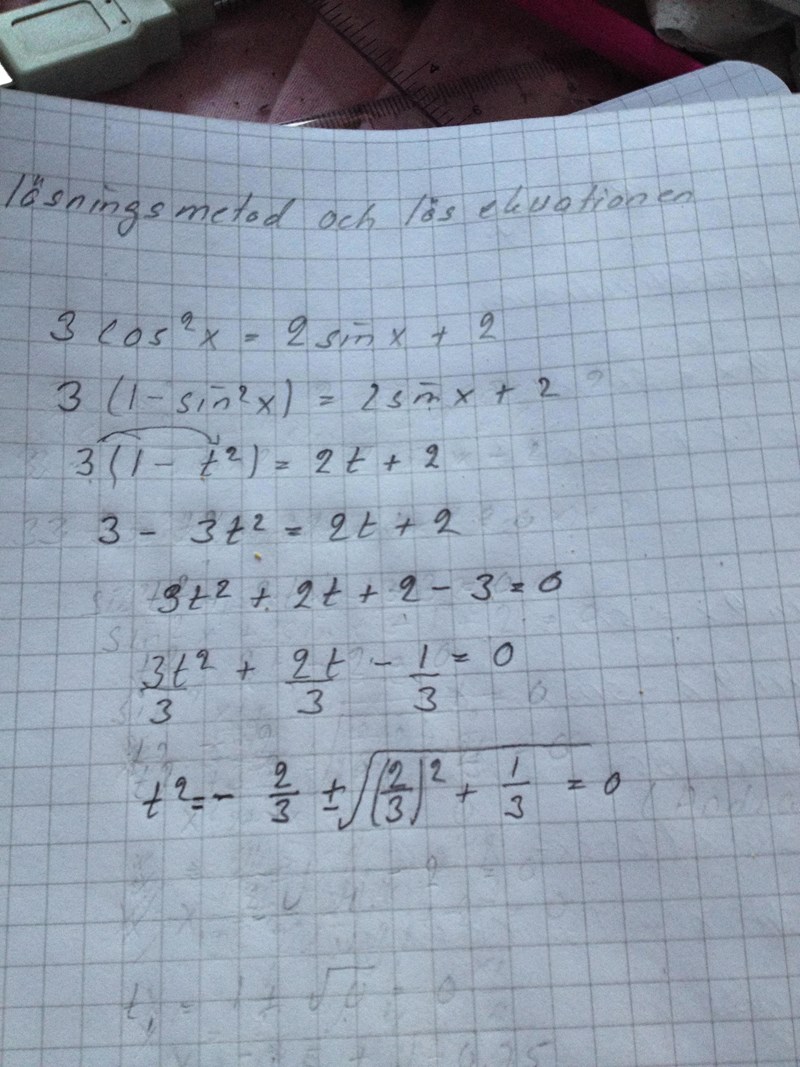 lösningsmetod och lös ekvationen
3 cos²x = 2 sin x + 2
3 (1 - sin²x) = 2 sin x + 2
3 (1 - t²) = 2t + 2
3 - 3t² = 2t + 2
3t² + 2t + 2 - 3 = 0
3t²/3 + 2t/3 - 1/3 = 0
t² = - 2/3 ± √((2/3)² + 1/3) = 0